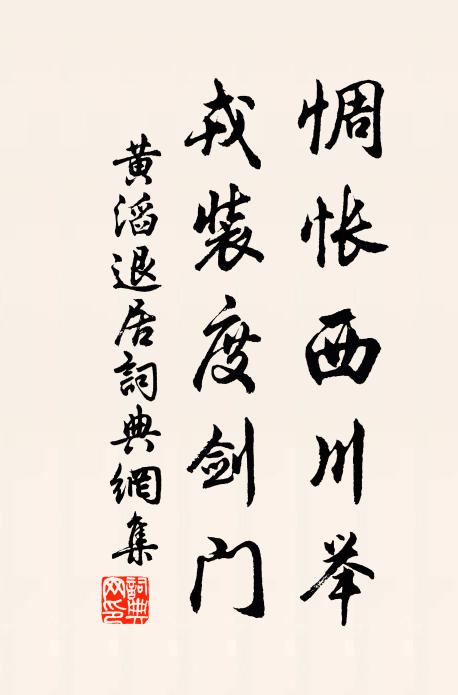 惆怅西川举
戎装度剑门
黄滔退居詞典網集
詞典网印